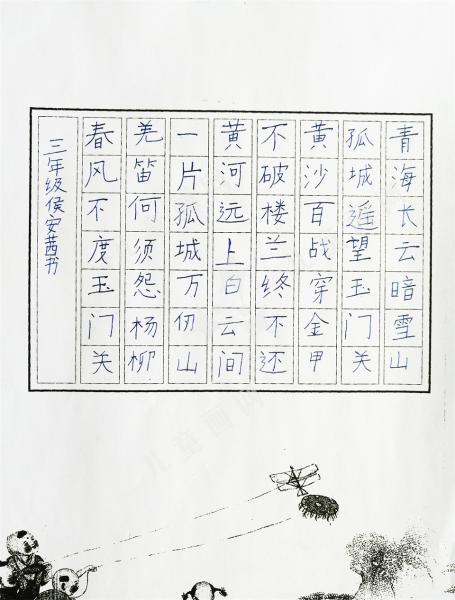 青海长云暗雪山
孤城遥望玉门关
黄沙百战穿金甲
不破楼兰终不还
黄河远上白云间
一片孤城万仞山
羌笛何须怨杨柳
春风不度玉门关
三年级侯安茜书